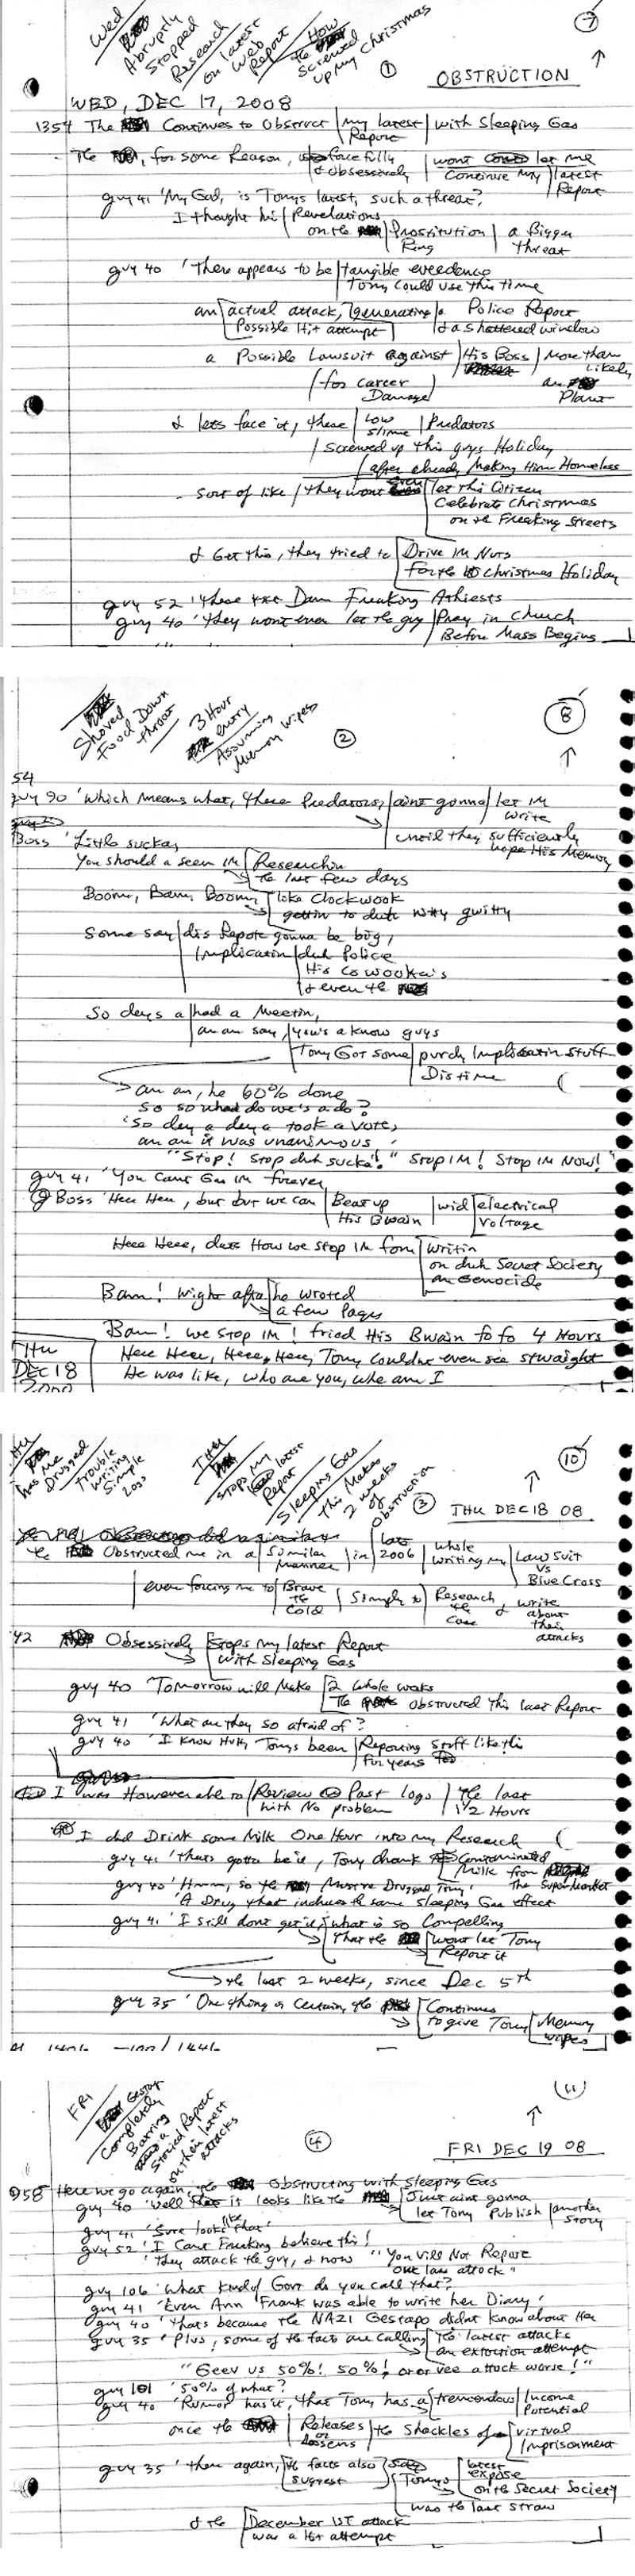 Wed
Abruptly
Stopped
Research
on latest
Web
Report
How
the
Screwed
up my Christmas
1
7
OBSTRUCTION
WED, DEC 17, 2008
1354 The Continues to Obstruct my latest Report with Sleeping Gas
The , for some Reason, forcefully & obsessively wont let me Continue my latest Report
guy 41 'My God, is Tonys latest, such a threat?
I thought his Revelations on the Prostitution Ring a Bigger threat
guy 40 'There appears to be tangible eveedence
Tony could use this time
an actual attack, generating a Police Report
Possible Hit attempt & a shattered window
a Possible Lawsuit against His Boss More than Likely
for career Damage an Plant
& lets face it, these Low slime Predators
screwed up this guys Holiday
after already Making Him Homeless
- sort of like they wont even let this Citizen
Celebrate Christmas
on the Freaking Streets
& Get this, they tried to Drive IM Nuts
for the Christmas Holiday
guy 52 'These Damn Freaking Athiests
guy 40 'they wont even let the guy Pray in Church
Before Mass Begins
Shoved
Food Down
throat
3 Hour
entry
Assuming
Memory wipes
2
8
54
guy 90 'Which means what, these Predators, aint gonna let IM write
until they sufficiently wipe His Memory
Boss 'Little sucka,
You should a seen IM Researchin
the last few days
Boom, Bam, Boom, like Clockwook
gettin to duh nitty gwitty
Some say dis Repote gonna be big,
Implicatin duh Police
His Co wooka's
& even the
So deys a had a Meetin,
an an say, yous a know guys
Tony Got some purdy Implicatin stuff
Dis time
an an, he 60% done
So so what do we's a do?
'So dey a dey a took a vote,
an an it was unanimous,
"Stop! Stop duh sucka!" Stop IM! Stop IM Now!"
guy 41 'You Cant Gas IM forever
Boss 'Hee Hee, but but we can Beat up His Bwain wid electrical voltage
Heee Heee, dats How we stop IM fom Writin
on duh Secret Society
an Genocide
Bam! wight afta he wroted
a few Pages
Bam! we stop IM! fried His Bwain fo fo 4 Hours
Heee Heee, Heee, Heee, Tony couldnt even see stwaight
He was like, who are you, who am I
THU
DEC 18
2008
THU
has me
Drugged
Trouble
writing
Simple
Logs
THU
stops my
latest
Report
Sleeping Gas
This Makes
2 weeks
of
Obstruction
3
10
THU DEC 18 08
the Obstructed me in a Similar Manner in late 2006 whole writing my Law Suit vs Blue Cross
even forcing me to Brave the Cold Simply to Research the Case & write about their attacks
42 Obsessively Stops my latest Report
with Sleeping Gas
guy 40 'Tomorrow will Make 2 whole weeks
The obstructed this last Report
guy 41 'What are they so afraid of?
guy 40 'I know Huh, Tonys been Reporting stuff like this
for years
I was However able to Review Past logs the last
with No problem 1 1/2 Hours
I did Drink some Milk One Hour into my Research
guy 41 'thats gotta be it, Tony drank Contaminated
Milk from
guy 40 'Hmm, so the Must've Drugged Tony' The SuperMarket
'A Drug that induces the same Sleeping Gas effect
guy 41 'I still dont get it, what is so Compelling
that the wont let Tony
Report it
the last 2 weeks, since Dec 5th
guy 35 'One thing is Certain, the Continues
to give Tony Memory wipes
FRI
Gestapo
Completely
Barring
a
Storied Report
on their latest
attacks
4
11
FRI DEC 19 08
958 Here we go again, the Obstructing with Sleeping Gas
guy 40 'well it looks like the Just aint gonna
let Tony Publish another story
guy 41 'Sure looks like that'
guy 52 'I Cant Freaking believe this!
'they attack the guy, & now "You Vill Not Report
our attack"
guy 106 'What Kind of Govt do you call that?'
guy 41 'Even Ann Frank was able to write her Diary'
guy 40 'thats because the NAZI Gestapo didnt know about Her
guy 35 'Plus, some of the facts are calling the latest attacks
an extortion attempt
"Geev us 50%! 50%! or or vee attack worse!"
guy 101 '50% of what?
guy 40 'Rumor has it, that Tony has a tremendous Income Potential
once the Releases or loosens the Shackles of virtual Imprisonment
guy 35 'then again, the facts also suggest Tonys latest expose on the Secret Society
was the last straw
& the December 1ST attack
was a Hit attempt